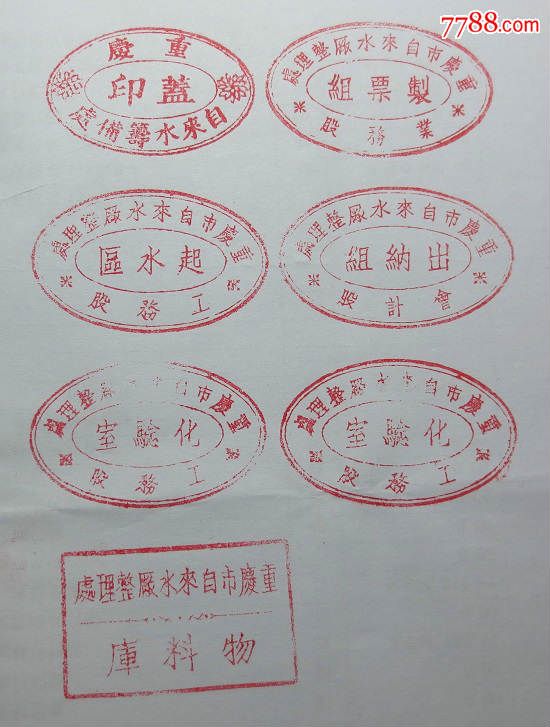 7788.com
重慶
蓋印
自來水籌備處
重慶市自來水厰整理處
製票組
業務股
重慶市自來水厰整理處
起水區
工務股
重慶市自來水厰整理處
出納組
會計股
重慶市自來水厰整理處
化驗室
工務股
重慶市自來水厰整理處
化驗室
工務股
重慶市自來水厰整理處
物料庫